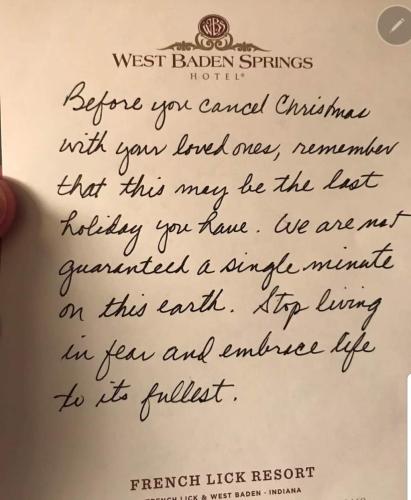 WBS
WEST BADEN SPRINGS
HOTEL®
Before you cancel Christmas
with your loved ones, remember
that this may be the last
holiday you have. We are not
guaranteed a single minute
on this earth. Stop living
in fear and embrace life
to its fullest.
FRENCH LICK RESORT
FRENCH LICK & WEST BADEN · INDIANA